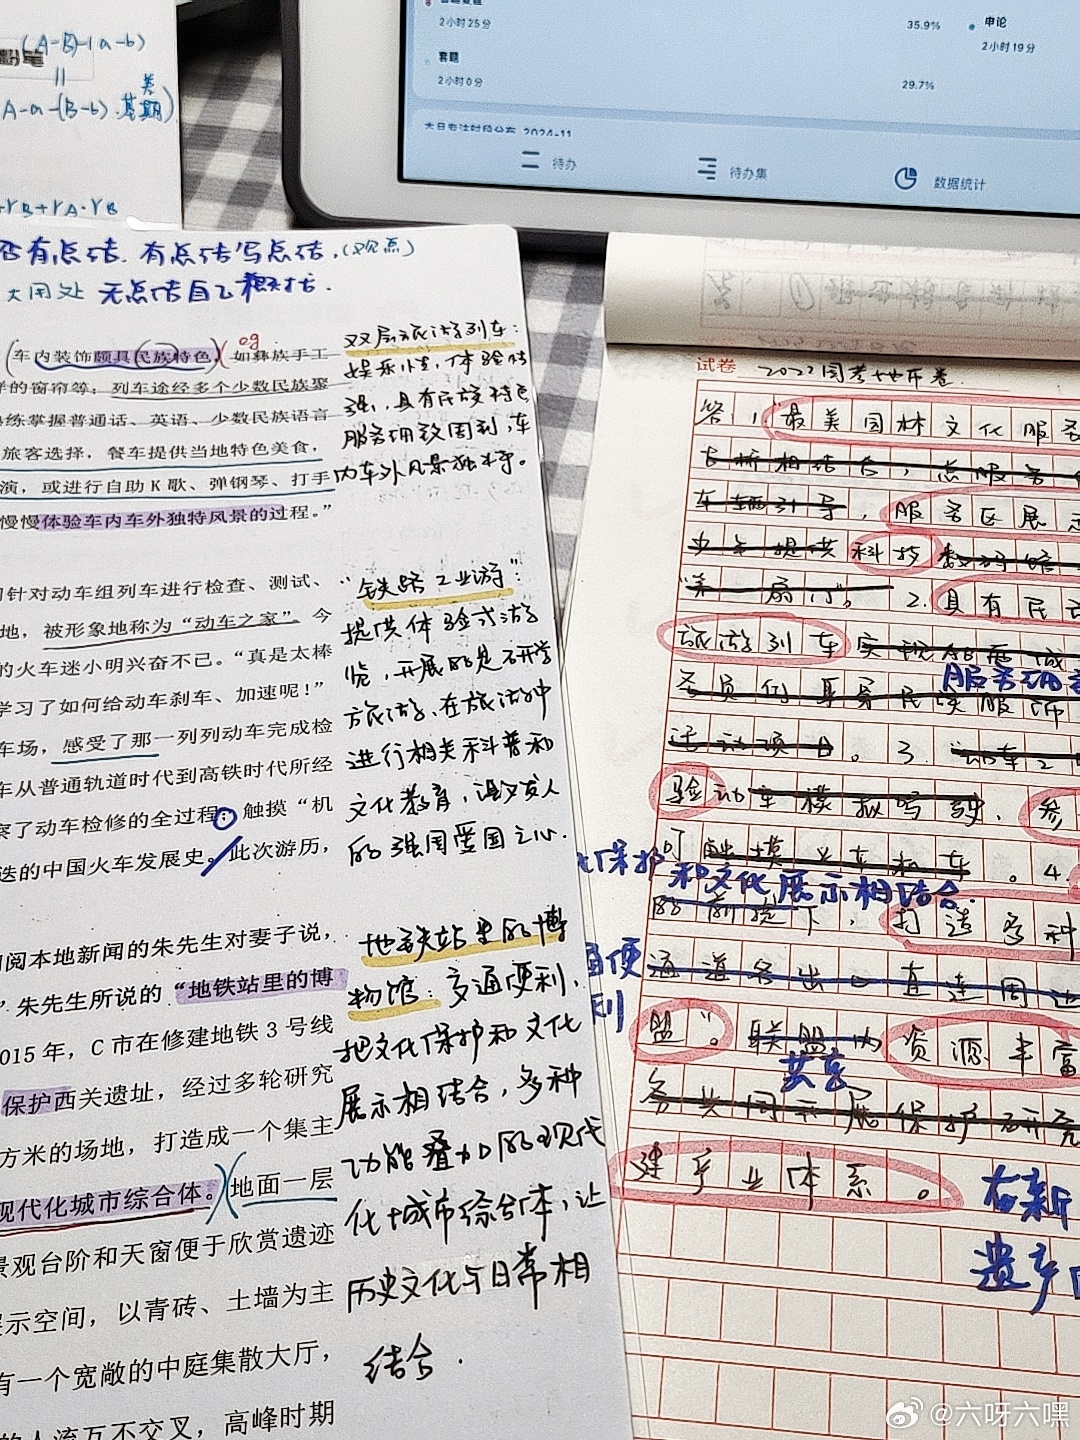 (A-B)-(a-b)
=
A-a-(B-b).基期
否有点结.有点结写点结.(观点)
大用处 无点结自己概括.
(车内装饰颇具民族特色,(如彝族手工
样的窗帘等;列车途经多个少数民族聚
练掌握普通话、英语、少数民族语言
旅客选择,餐车提供当地特色美食,
演,或进行自助K歌、弹钢琴、打手
慢慢体验车内车外独特风景的过程。”
针对动车组列车进行检查、测试、
地,被形象地称为“动车之家”。今
的火车迷小明兴奋不已。“真是太棒
学习了如何给动车刹车、加速呢!”
车场,感受了那一列列动车完成检
车从普通轨道时代到高铁时代所经
察了动车检修的全过程;触摸“机
迭的中国火车发展史。此次游历,
阅本地新闻的朱先生对妻子说,
”朱先生所说的“地铁站里的博
015年,C市在修建地铁3号线
保护西关遗址,经过多轮研究
方米的场地,打造成一个集主
现代化城市综合体。)(地面一层
景观台阶和天窗便于欣赏遗迹
示空间,以青砖、土墙为主
有一个宽敞的中庭集散大厅,
人流互不交叉,高峰时期
双层旅游列车:
娱乐性,体验性
强,具有民族特色
服务细致周到,车
内车外风景独特。
“铁路工业游”:
提供体验式游
览,开展的是研学
旅游、在旅游中
进行相关科普和
文化教育,激发人
的强国爱国之心.
地铁站里的博
物馆:交通便利,
把文化保护和文化
展示相结合,多种
功能叠加的现代
化城市综合体,让
历史文化与日常相
结合.
2小时25分
35.9%
申论
2小时19分
套题
2小时0分
29.7%
本日专注时段分布 2024-11
待办
待办集
数据统计
试卷 2022国考地市卷
答:1.“最美园林文化服务
长桥相结合,点服务
车辆引导,服务区展
提供科技数码馆
“第一扇门”。2.具有民
旅游列车实现
服务细
务员们身穿民族服饰
活动项目。3.动车工
验动车模拟驾驶、参
可触摸火车机车。4.
保护和文化展示相结合.
的前提下,打造多种
通便利
通道各出口直连周边
盟”。联盟为资源丰富
共享
各共同开展保护研究
建产业体系。
在新
遗产
@六呀六嘿